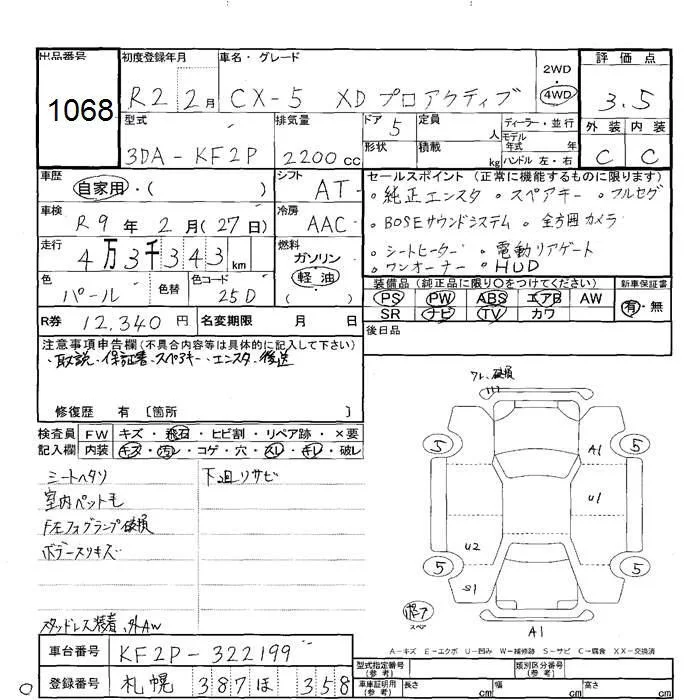 出品番号 1068
初度登録年月 R2 2月
車名・グレード CX-5 XD プロアクティブ
2WD 4WD
評価点 3.5
外装 C 内装 C
型式 3DA-KF2P
排気量 2200cc
ドア 5 定員 人
形状 積載 kg
ディーラー・並行
モデル年式 年
ハンドル 左・右
車歴 自家用・( )
シフト AT
車検 R9年2月(27日)
冷房 AAC
走行 4万3千343km
燃料 ガソリン 軽油 ( )
色 パール 色替 色コード 25D
R券 12,340円 名変期限 月 日
セールスポイント(正常に機能するものに限ります)
。純正エンスタ 。スペアキー 。フルセグ
。BOSEサウンドシステム 。全方囲カメラ
。シートヒーター 。電動リアゲート
。ワンオーナー 。HUD
装備品(純正品に限り○をつけてください)
PS PW ABS エアB AW
SR ナビ TV カワ
新車保証書 有・無
後日品
注意事項申告欄(不具合内容等は具体的に記入して下さい)
・取説・保証書・スペアキー・エンスタ・後送
修復歴 有〔箇所 〕
検査員記入欄
FW キズ・飛石・ヒビ割・リペア跡・×要
内装 キズ・汚レ・コゲ・穴・スレ・キレ・破レ
シートヘタリ
室内ペット毛
F左フォグランプ破損
ボデースリキズ
スタッドレス装着、外AW
下廻リサビ
ワレ、破損
5 5 A1 U1 U2 S1 5 5
ボア スペア
A1
A-キズ E-エクボ U-凹み W-補修跡 S-サビ C-腐食 XX-交換済
車台番号 KF2P-322199
登録番号 札幌 387 ほ 358
型式指定番号(参考) 類別区分番号(参考)
車庫証明用(参考) 長さ cm 幅 cm 高さ cm